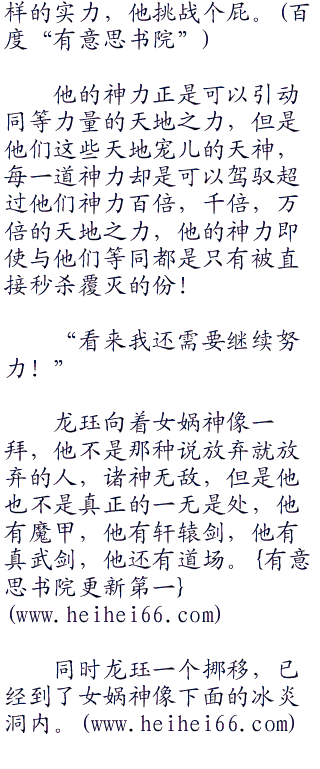 样的实力，他挑战个屁。(百
度“有意思书院”)
他的神力正是可以引动
同等力量的天地之力，但是
他们这些天地宠儿的天神，
每一道神力却是可以驾驭超
过他们神力百倍，千倍，万
倍的天地之力，他的神力即
使与他们等同都是只有被直
接秒杀覆灭的份！
“看来我还需要继续努
力！”
龙珏向着女娲神像一
拜，他不是那种说放弃就放
弃的人，诸神无敌，但是他
也不是真正的一无是处，他
有魔甲，他有轩辕剑，他有
真武剑，他还有道场。{有意
思书院更新第一}
(www.heihei66.com)
同时龙珏一个挪移，已
经到了女娲神像下面的冰炎
洞内。(www.heihei66.com)